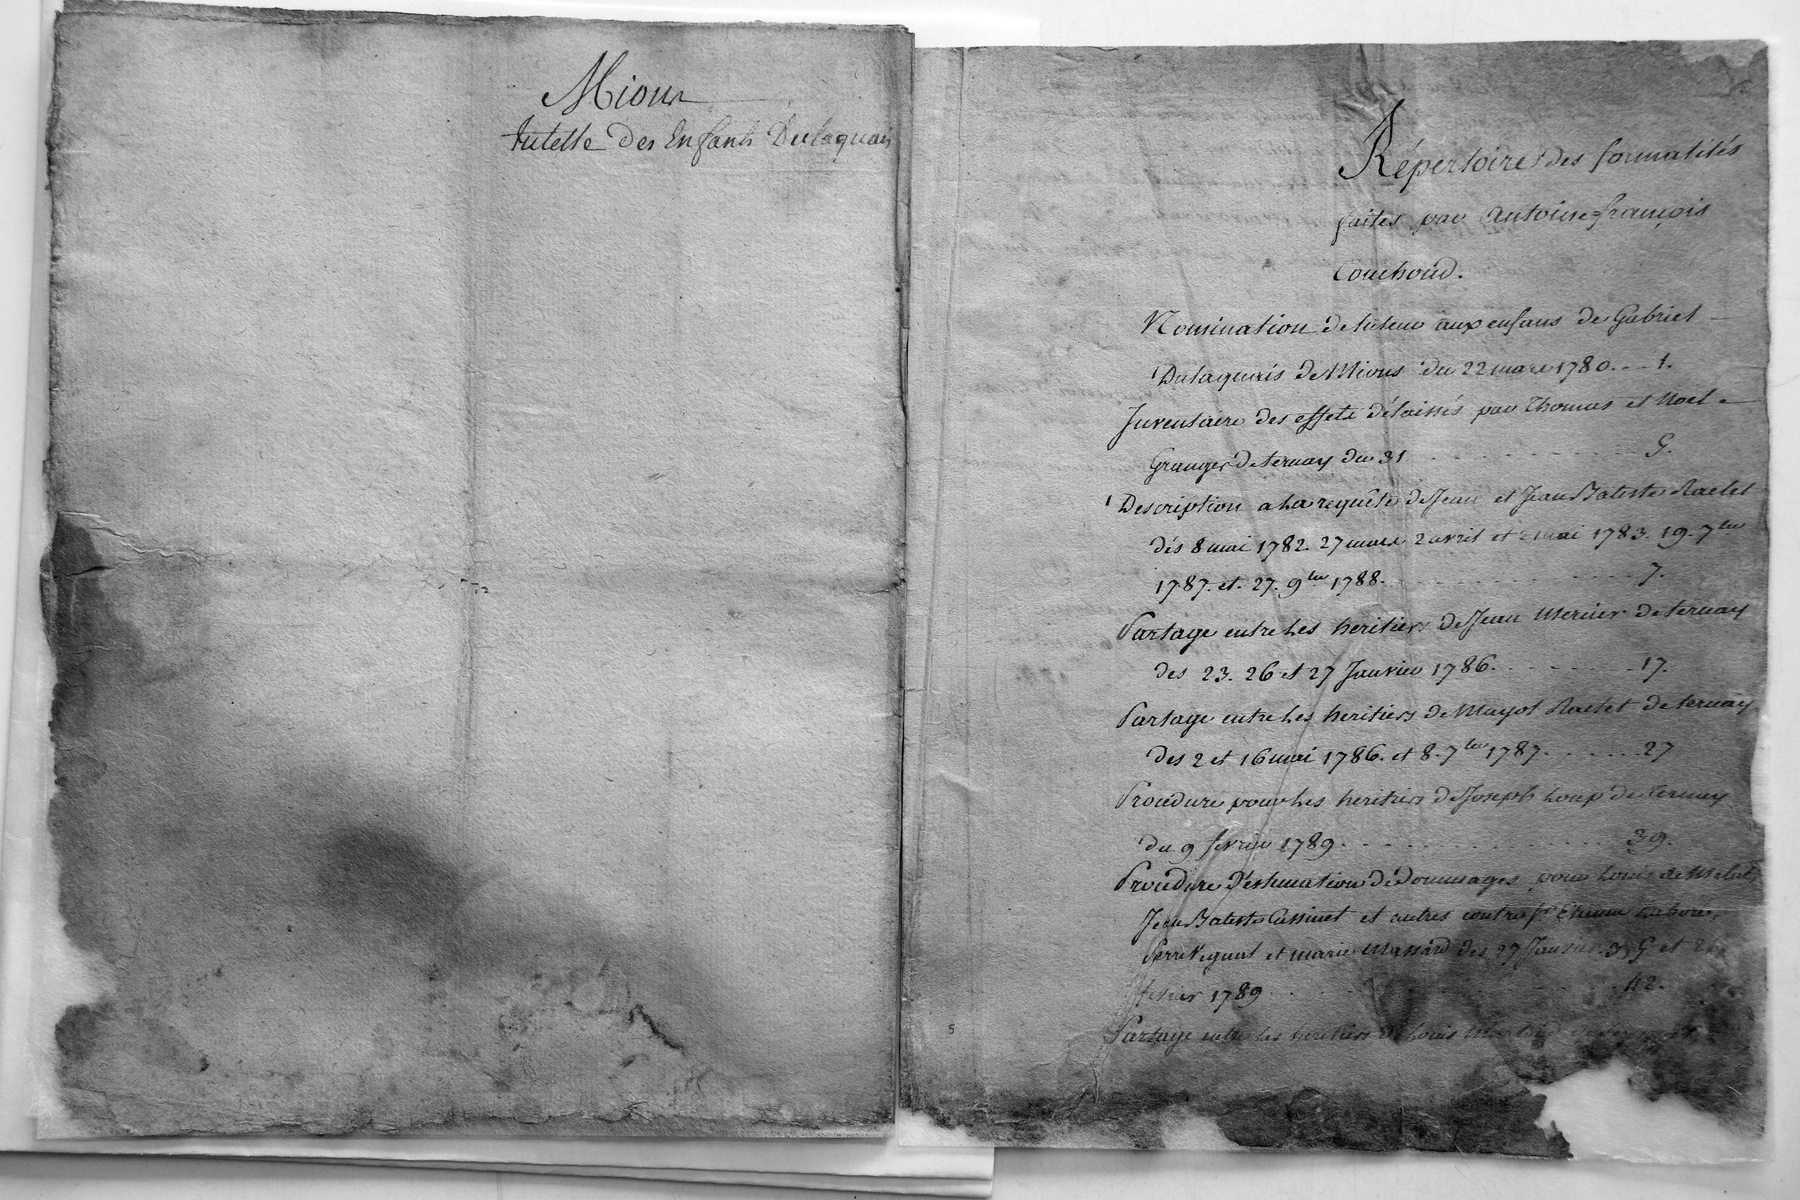 Mions
tutelle des Enfants Dulaquais
Répertoire des formalités
faites par Antoine-françois
Couchoud.
Nomination de tuteur aux enfans de Gabriel
Dulaquais de Mions du 22 mars 1780. 1.
Inventaire des effets délaissés par Thomas et Noel
Granger de ternay du 31 5.
Description a la requête de Jean et Jean Batiste Raclet
dés 8 mai 1782. 27 mars 2 avril et 2 mai 1783. 19. 7bre
1787. et. 27. 9bre 1788. 7.
Partage entre les heritiers de Jean Mercier de ternay
des 23. 26 et 27 Janvier 1786. 17.
Partage entre les heritiers de Mayol Raclet de ternay
des 2 et 16 mai 1786. et 8. 7bre 1787. 27
Procedure pour les heritiers de Joseph Loup de Ternay
du 9 fevrier 1789. 39.
Procedure d'estimation de dommages pour Louis
Jean Batiste Cussinet et autres contre Sr. Etienne
et marie Massard des 27 Janvier. 3, 5 et
fevrier 1789 42.
Partage entre les heritiers de Louis
5